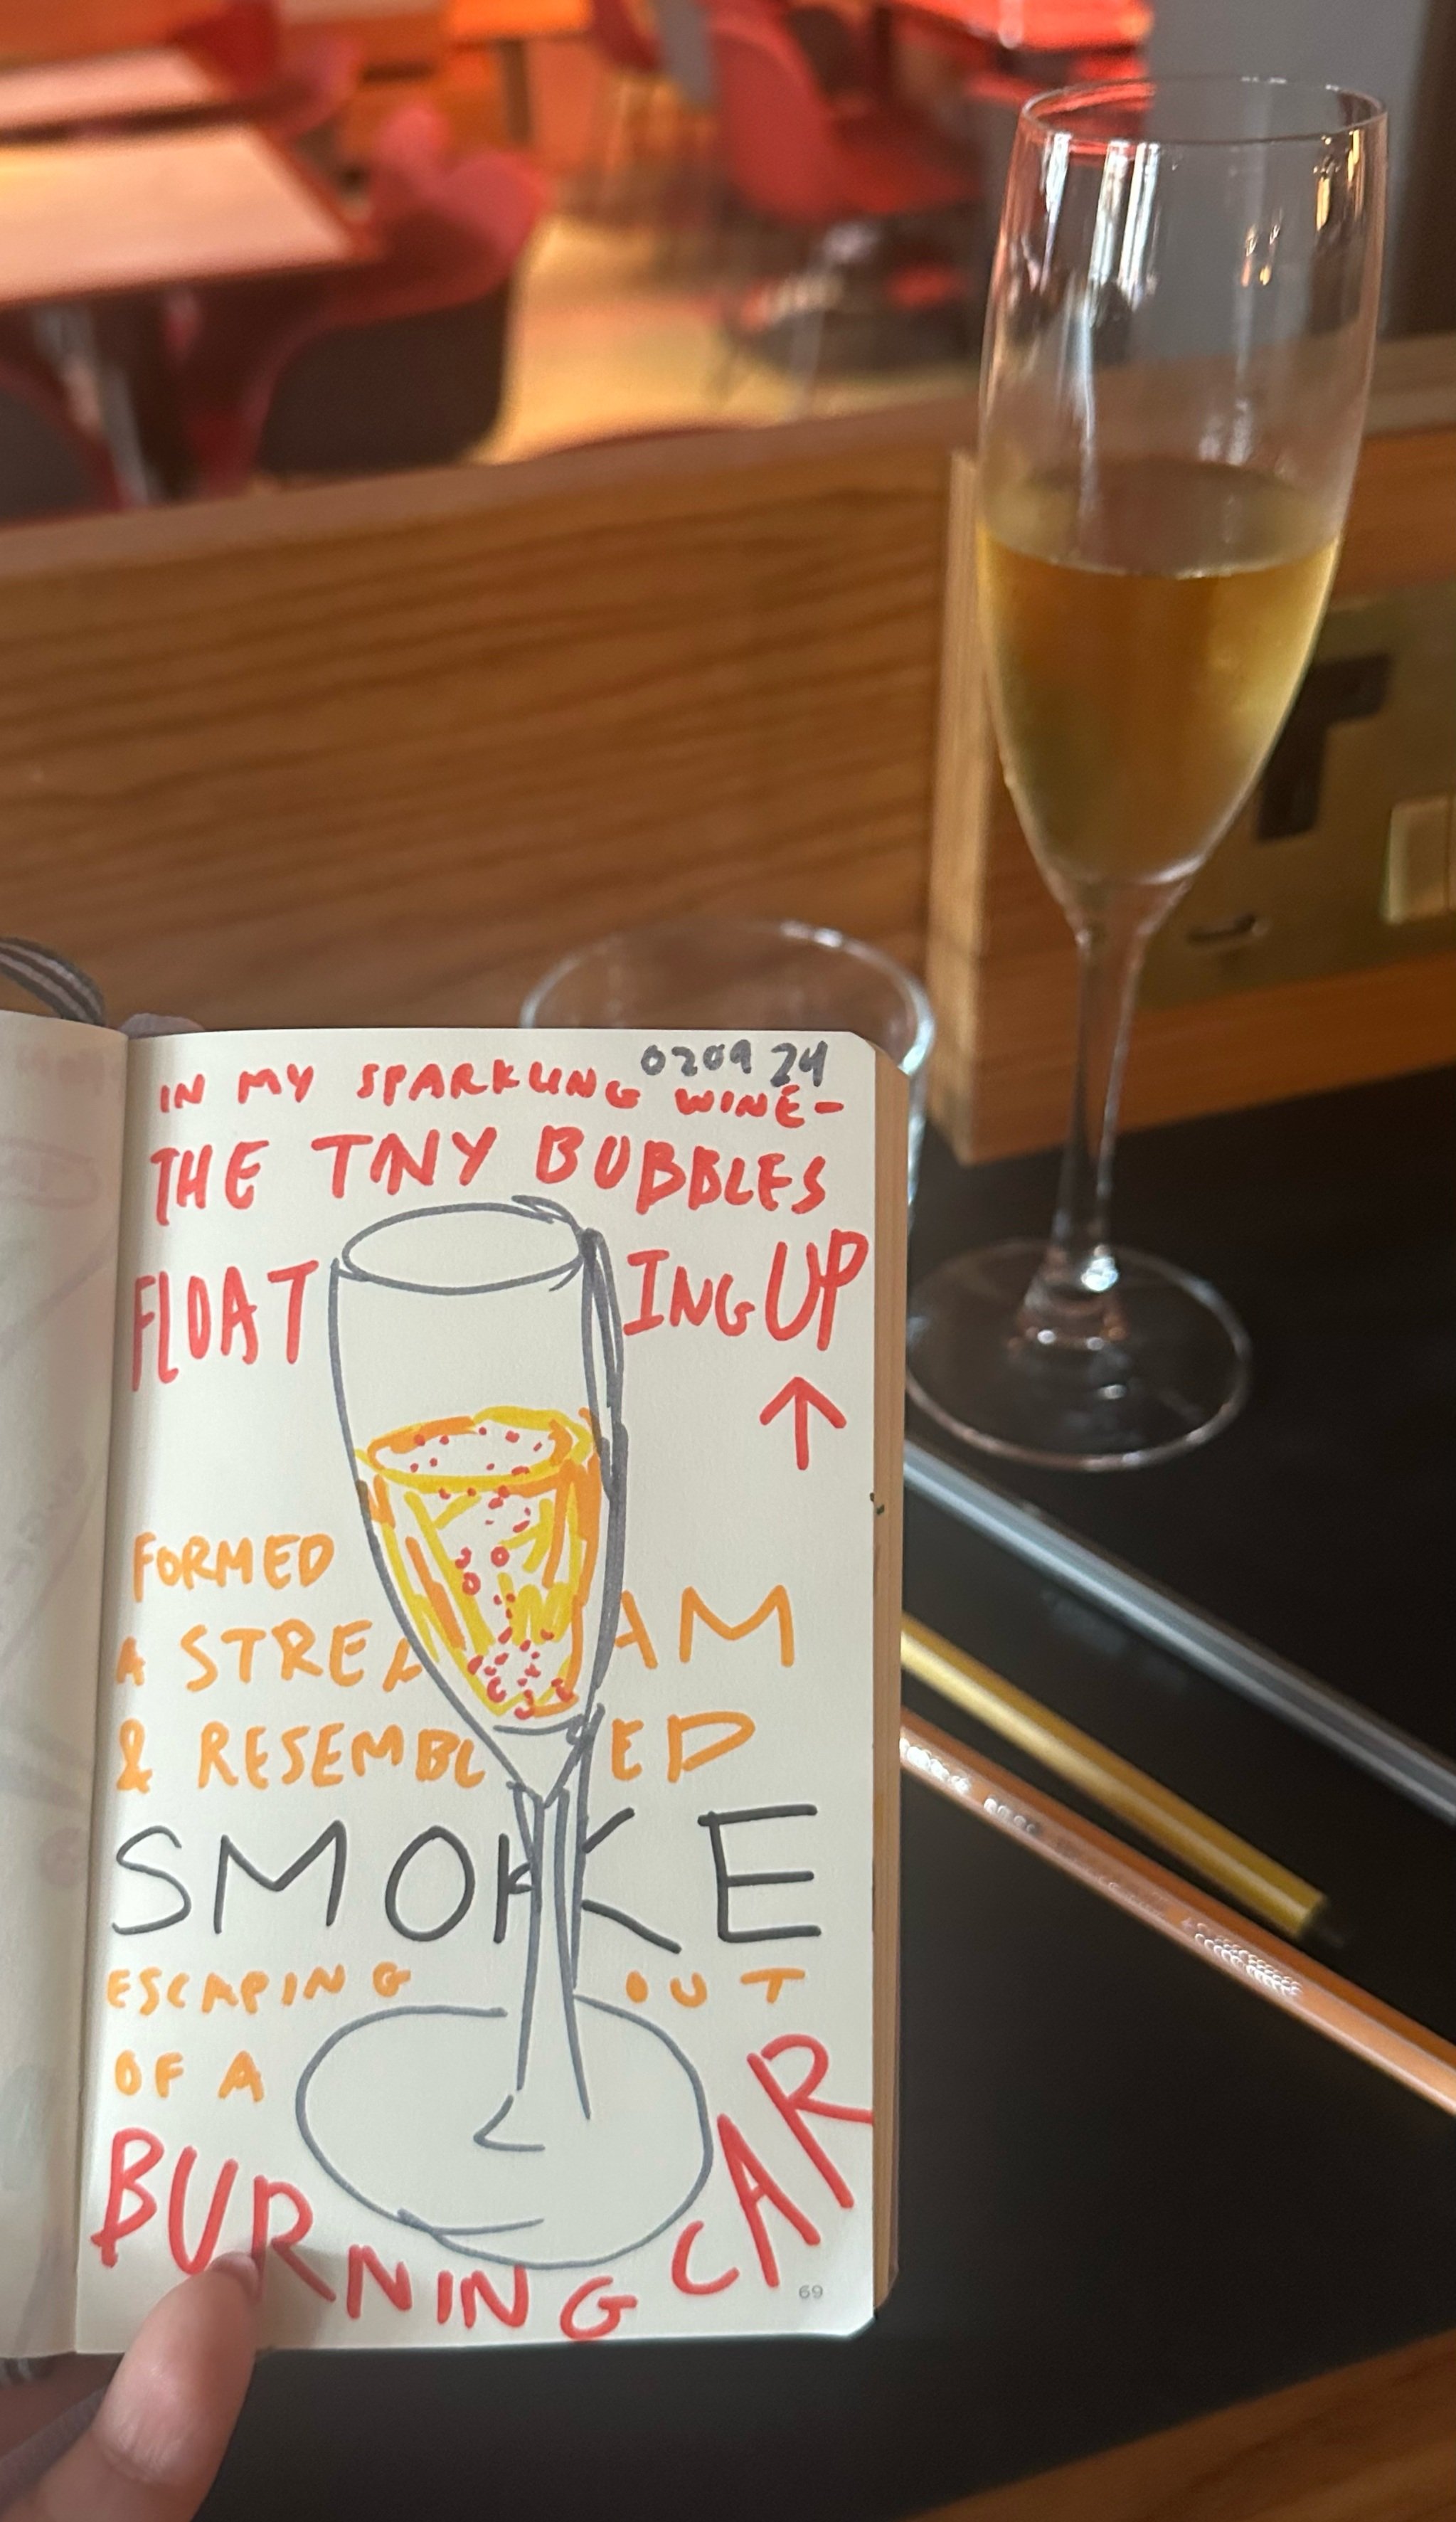 020924
IN MY SPARKLING WINE-
THE TINY BUBBLES
FLOATING UP
FORMED
A STREAM
& RESEMBLED
SMOKE
ESCAPING OUT
OF A
BURNING CAR
69